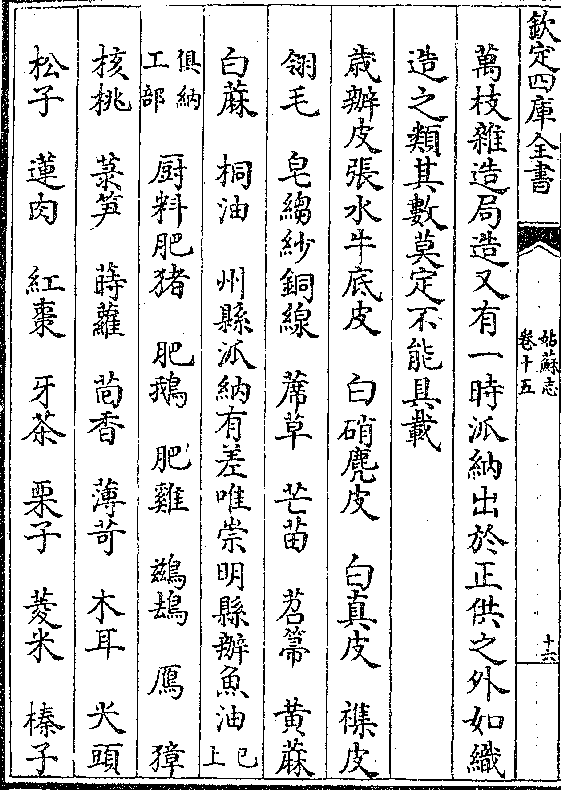 欽定四庫全書
姑蘇志
卷十五
十六
萬枝雜造局造又有一時派納出於正供之外如織
造之類其數莫定不能具載
歲辦皮張水牛底皮 白硝麂皮 白真皮 襍皮
翎毛 皂縐紗銅線 蓆草 芒苗 苕箒 黄蔴
白蔴 桐油 州縣派納有差唯崇明縣辦魚油已上
俱納工部 厨料肥猪 肥鵝 肥雞 鷀鴣 鴈 獐
核桃 菉笋 蒔蘿 茴香 薄苛 木耳 火頭
松子 蓮肉 紅棗 牙茶 栗子 菱米 榛子